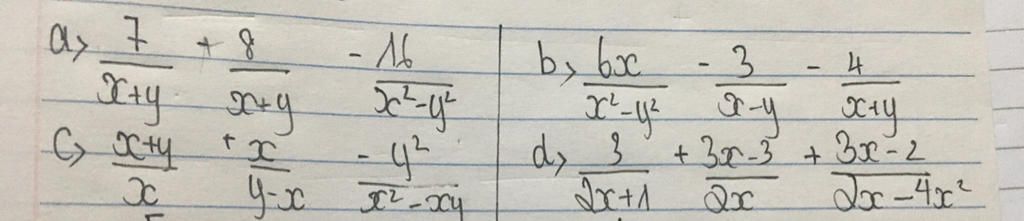 a) 7/(x+y) + 8/(x+y) - 16/(x²-y²)
b) 6x/(x²-y²) - 3/(x-y) - 4/(x+y)
c) (x+y)/x + x/(y-x) - y²/(x²-xy)
d) 3/(2x+1) + (3x-3)/2x + (3x-2)/(2x-4x²)